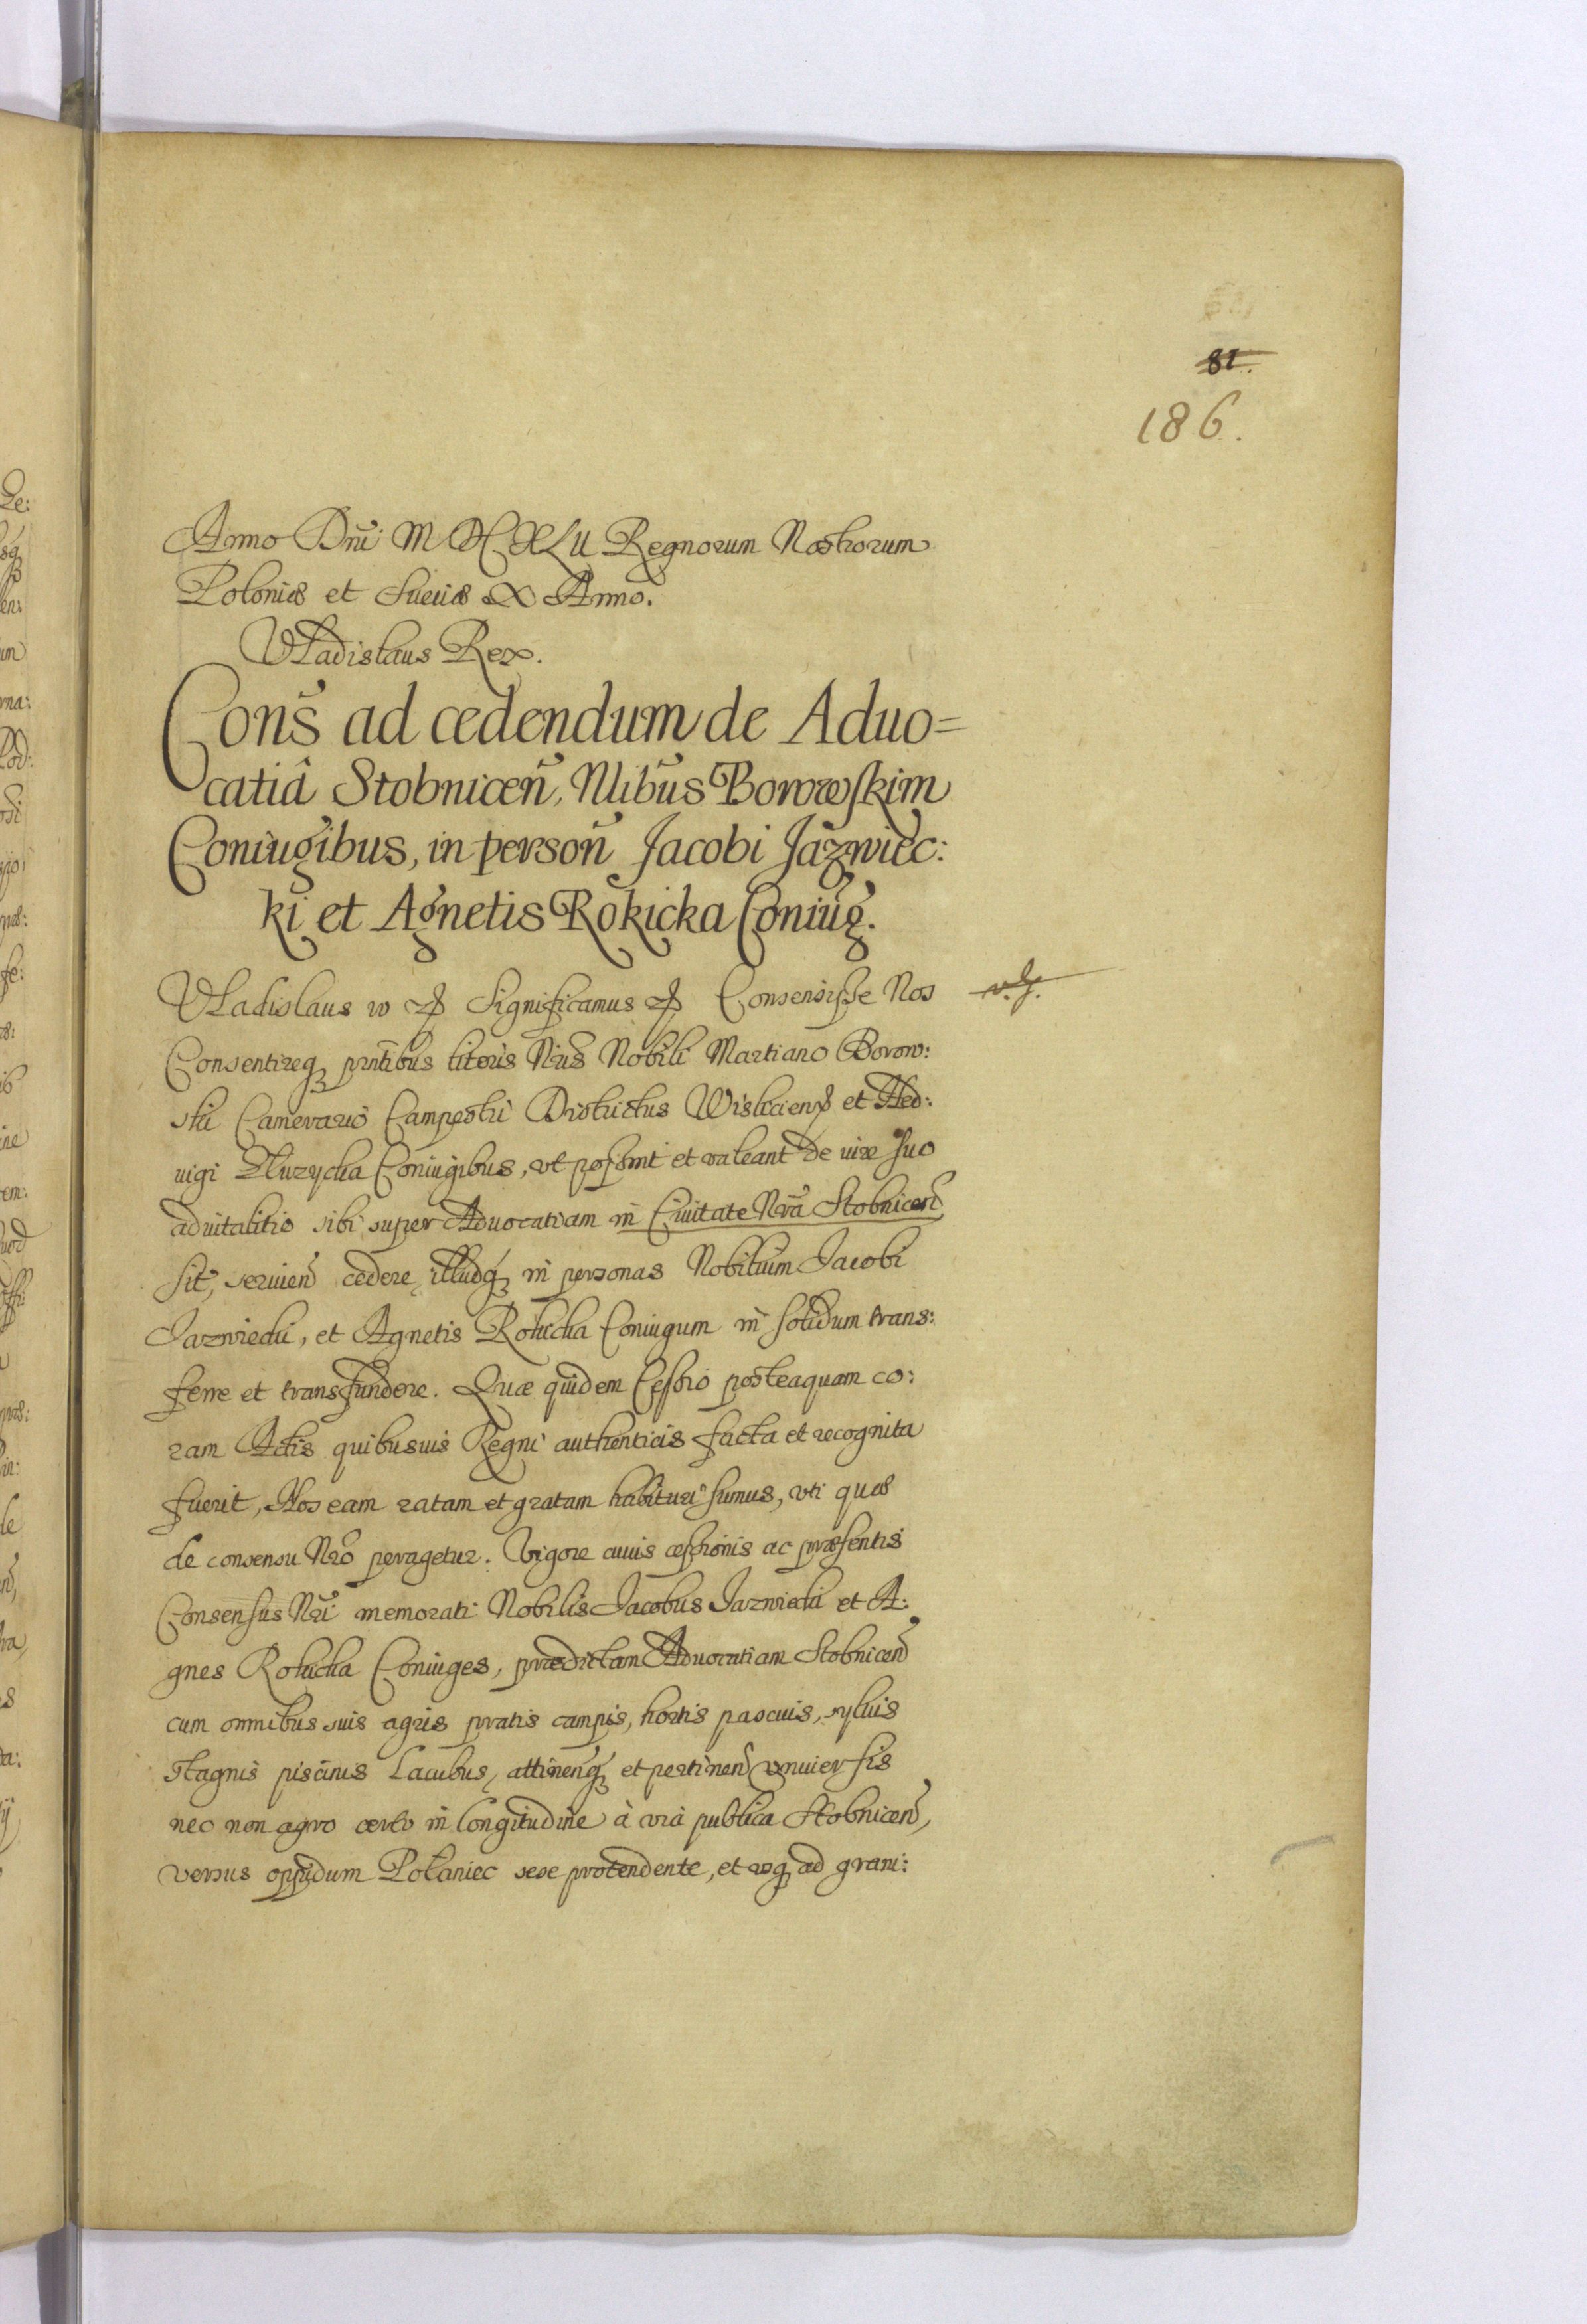 81.
186.
Anno Dni M DC XLII Regnorum Nostrorum
Poloniæ et Sueciæ X Anno.
Vladislaus Rex.
Cons̃ ad cedendum de Aduo=
catiâ Stobniceñ, Nlibus Borowskim
Coniugibus, in persoñ Jacobi Jazwiec:
ki et Agnetis Rokicka Coniug.
Vladislaus IV etc Significamus etc Consensisse Nos
Consentireq prñtibus literis Nris Nobili Martiano Borow:
ski Camerario Campestri Districtus Wisliciens et Hed:
uigi Dluzycka Coniugibus, vt possint et valeant de iure suo
aduitalitio sibi super Aduocatiam in Ciuitate Nrã Stobniceñ
sit, seruieñ cedere, illudq in personas Nobilium Jacobi
Jazwiecki, et Agnetis Rokicka Coniugum in solidum trans:
ferre et transfundere. Quæ quidem Cessio posteaquam co:
ram Actis quibusuis Regni authenticis facta et recognita
fuerit, Nos eam ratam et gratam habituri sumus, vti quæ
de consensu Nrõ peragetur. Vigore cuius cessionis ac præsentis
Consensus Nrĩ memorati Nobilis Jacobus Jazwiecki et A:
gnes Rokicka Coniuges, prædictam Aduocatiam Stobniceñ
cum omnibus suis agris pratis campis, hortis pascuis, syluis
stagnis piscinis Lacubus, attineñq et pertineñ vniuersis
nec non agro certo in longitudine à via publica Stobniceñ,
versus oppidum Polaniec sese protendente, et vsq ad grani: